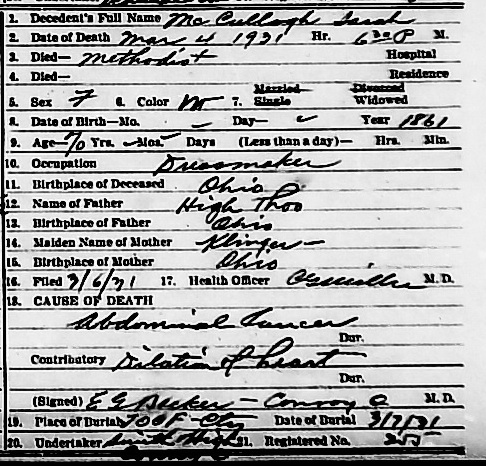 1. Decedent's Full Name McCullogh Sarah
2. Date of Death Mar 4 1931 Hr. 6 30 P M.
3. Died— Methodist Hospital
4. Died— Residence
5. Sex F 6. Color W 7. Married Single Divorced Widowed
8. Date of Birth—Mo. – Day– – Year 1861
9. Age 70 Yrs. – Mos. – Days (Less than a day)— Hrs. Min.
10. Occupation Dressmaker
11. Birthplace of Deceased Ohio
12. Name of Father High Thos
13. Birthplace of Father Ohio
14. Maiden Name of Mother Klinger –
15. Birthplace of Mother Ohio
16. Filed 3/6/31 17. Health Officer Miller M. D.
18. CAUSE OF DEATH
Abdominal Cancer
Dur.
Contributory Dilation of heart
Dur.
(Signed) E G Becker – Convoy O M. D.
19. Place of Burial IOOF – Cty Date of Burial 3/7/31
20. Undertaker Smith & High 21. Registered No. 255